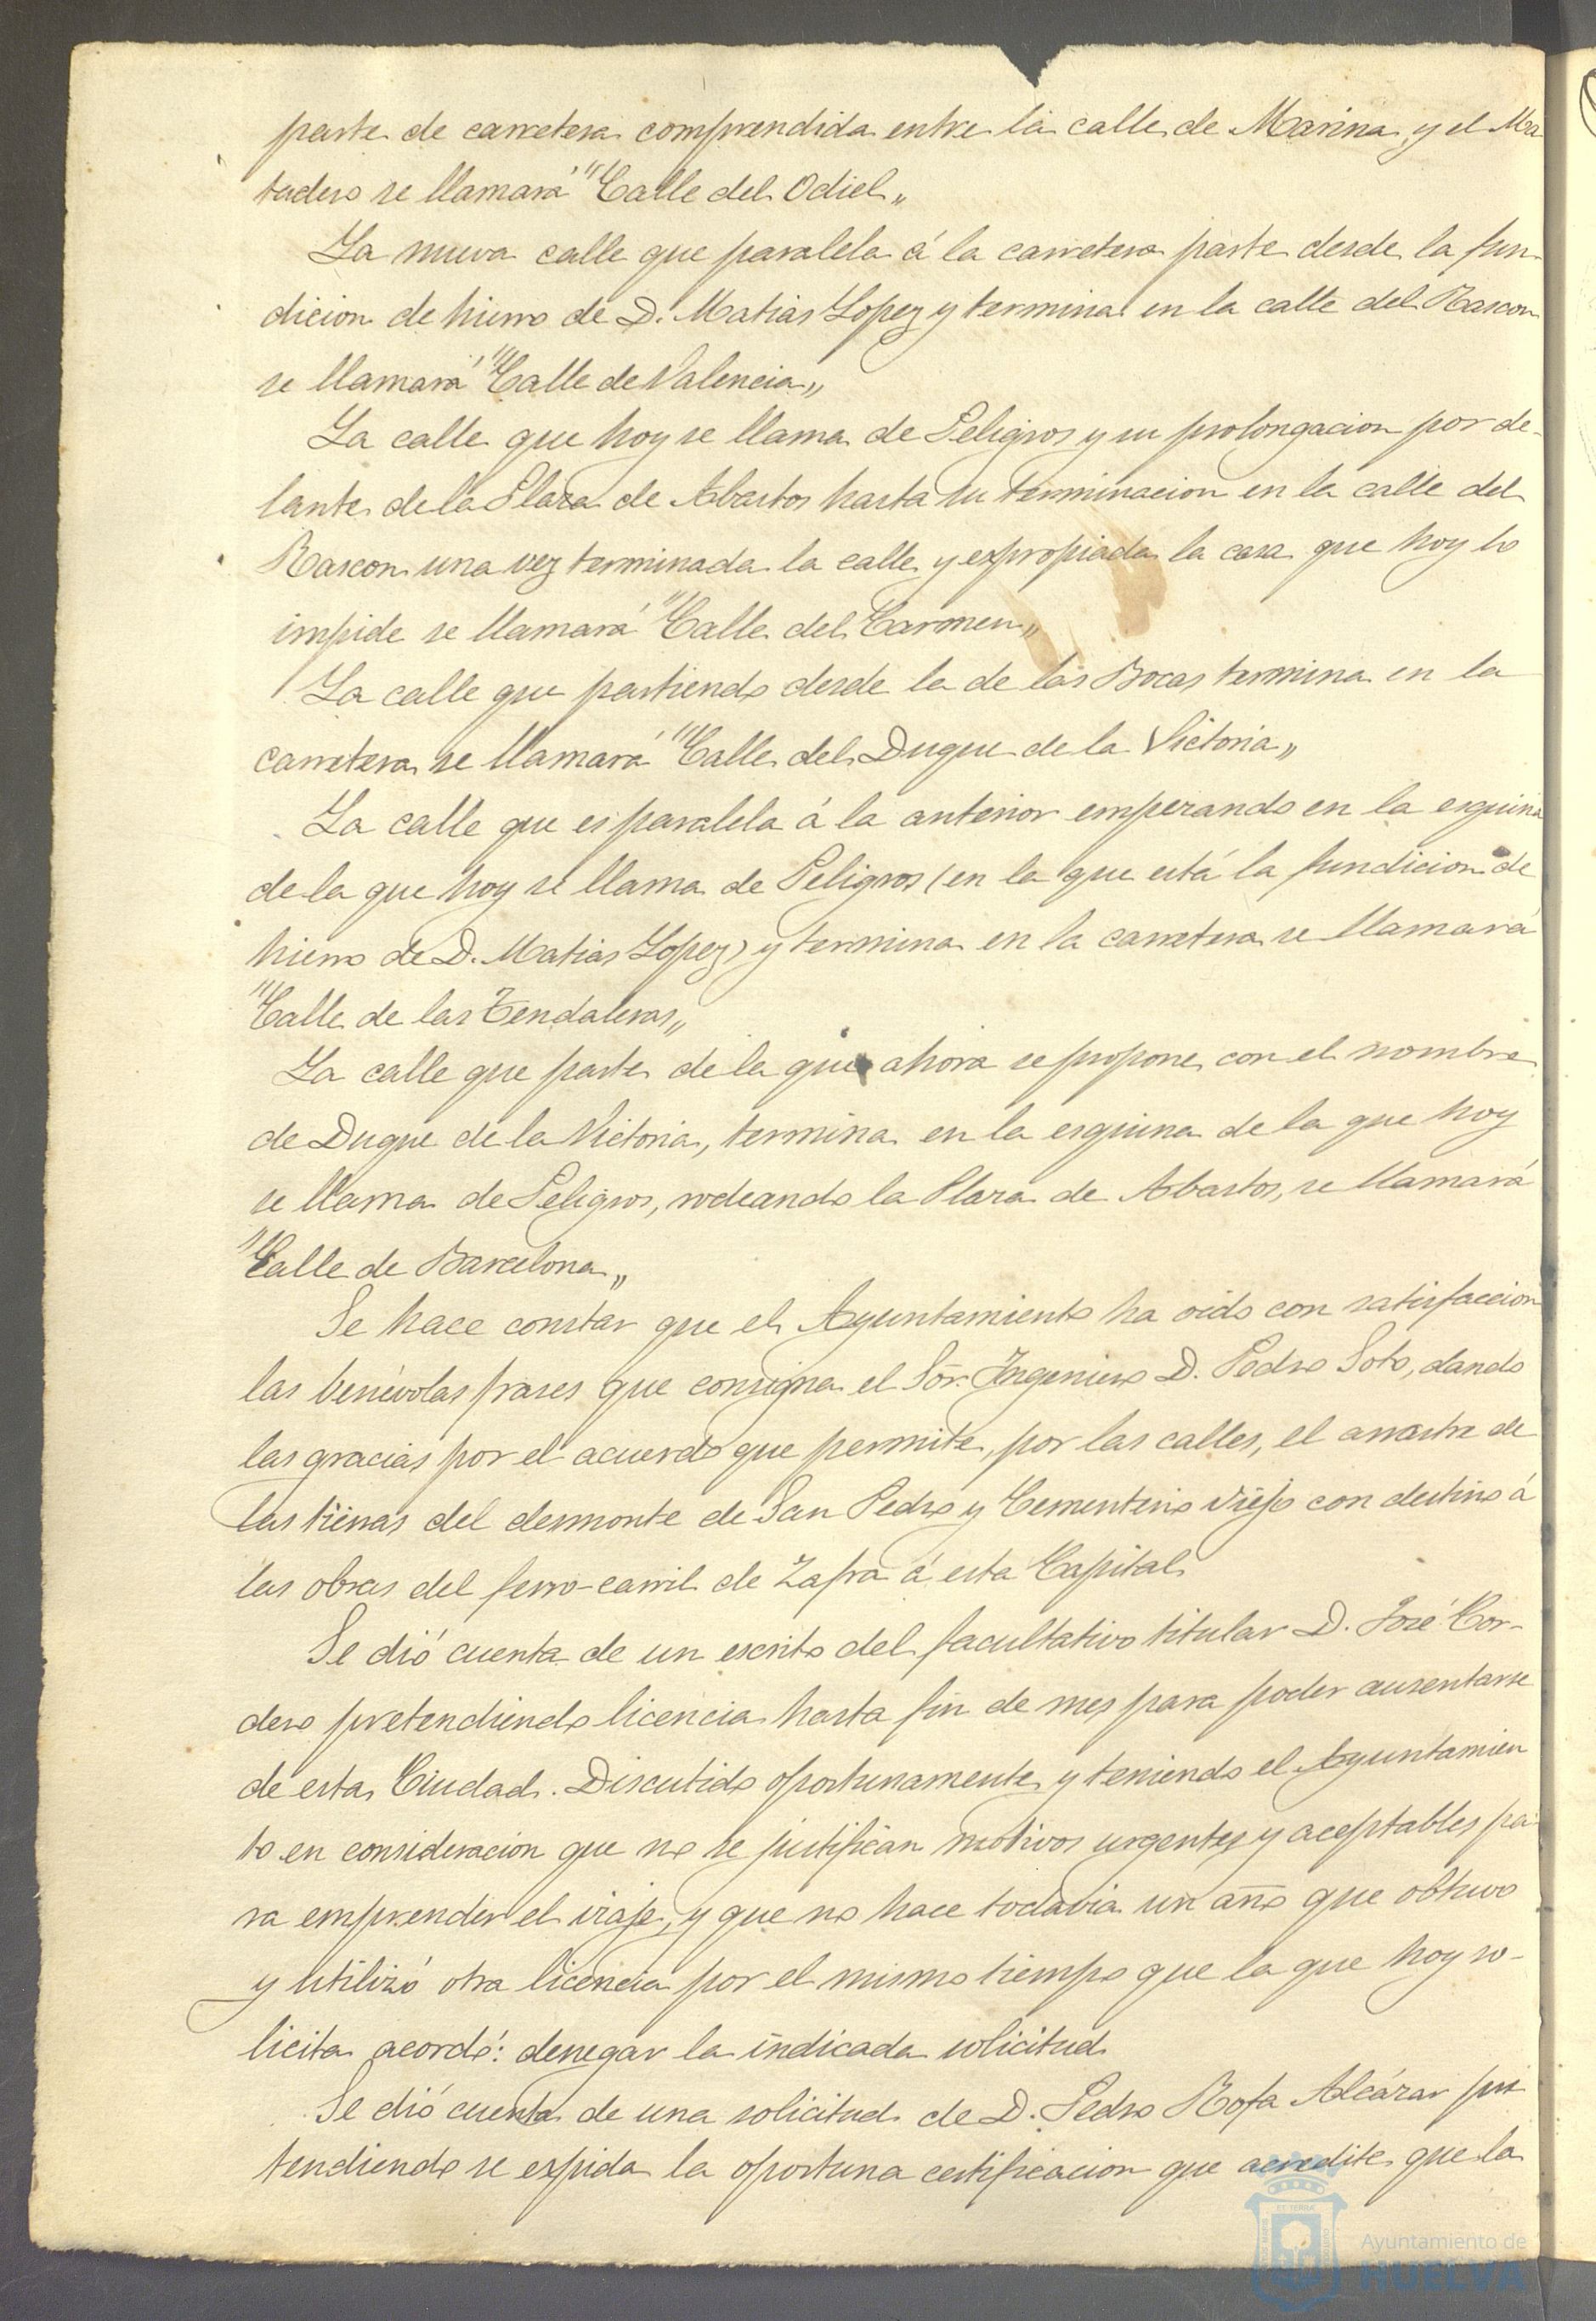 parte de carretera comprendida entre la calle de Marina y el Ma
tadero se llamará "Calle del Odiel„
La nueva calle que paralela á la carretera parte desde la fun-
dicion de hierro de D. Matias Lopez y termina en la calle del Rascon
se llamará "Calle de Valencia„
La calle que hoy se llama de Peligros y su prolongacion por de-
lante de la Plaza de Abastos hasta su terminacion en la calle del
Rascon una vez terminada la calle y expropiada la casa que hoy lo
impide se llamará "Calle del Carmen„
La calle que partiendo desde la de las Bocas termina en la
carretera se llamará "Calle del Duque de la Victoria„
La calle que es paralela á la anterior empezando en la esquina
de la que hoy se llama de Peligros (en la que está la fundicion de
hierro de D. Matias Lopez) y termina en la carretera se llamará
"Calle de las Tendaleras„
La calle que parte de la que ahora se propone con el nombre
de Duque de la Victoria, termina en la esquina de la que hoy
se llama de Peligros, rodeando la Plaza de Abastos, se llamará
"Calle de Barcelona„
Se hace constar que el Ayuntamiento ha oido con satisfaccion
las benévolas frases que consigna el Sor. Ingeniero D. Pedro Soto, dando
las gracias por el acuerdo que permite, por las calles, el arrastre de
las tierras del desmonte de San Pedro y Cementerio viejo con destino á
las obras del ferro-carril de Zafra á esta Capital
Se dió cuenta de un escrito del facultativo titular D. José Cor-
dero pretendiendo licencia hasta fin de mes para poder ausentarse
de esta Ciudad. Discutido oportunamente y teniendo el Ayuntamien
to en consideracion que no se justifican motivos urgentes y aceptables pa-
ra emprender el viaje, y que no hace todavia un año que obtuvo
y utilizó otra licencia por el mismo tiempo que la que hoy so-
licita acordó: denegar la indicada solicitud
Se dió cuenta de una solicitud de D. Pedro Rofa Alcázar pre
tendiendo se expida la oportuna certificacion que acredite que la
Ayuntamiento de
HUELVA